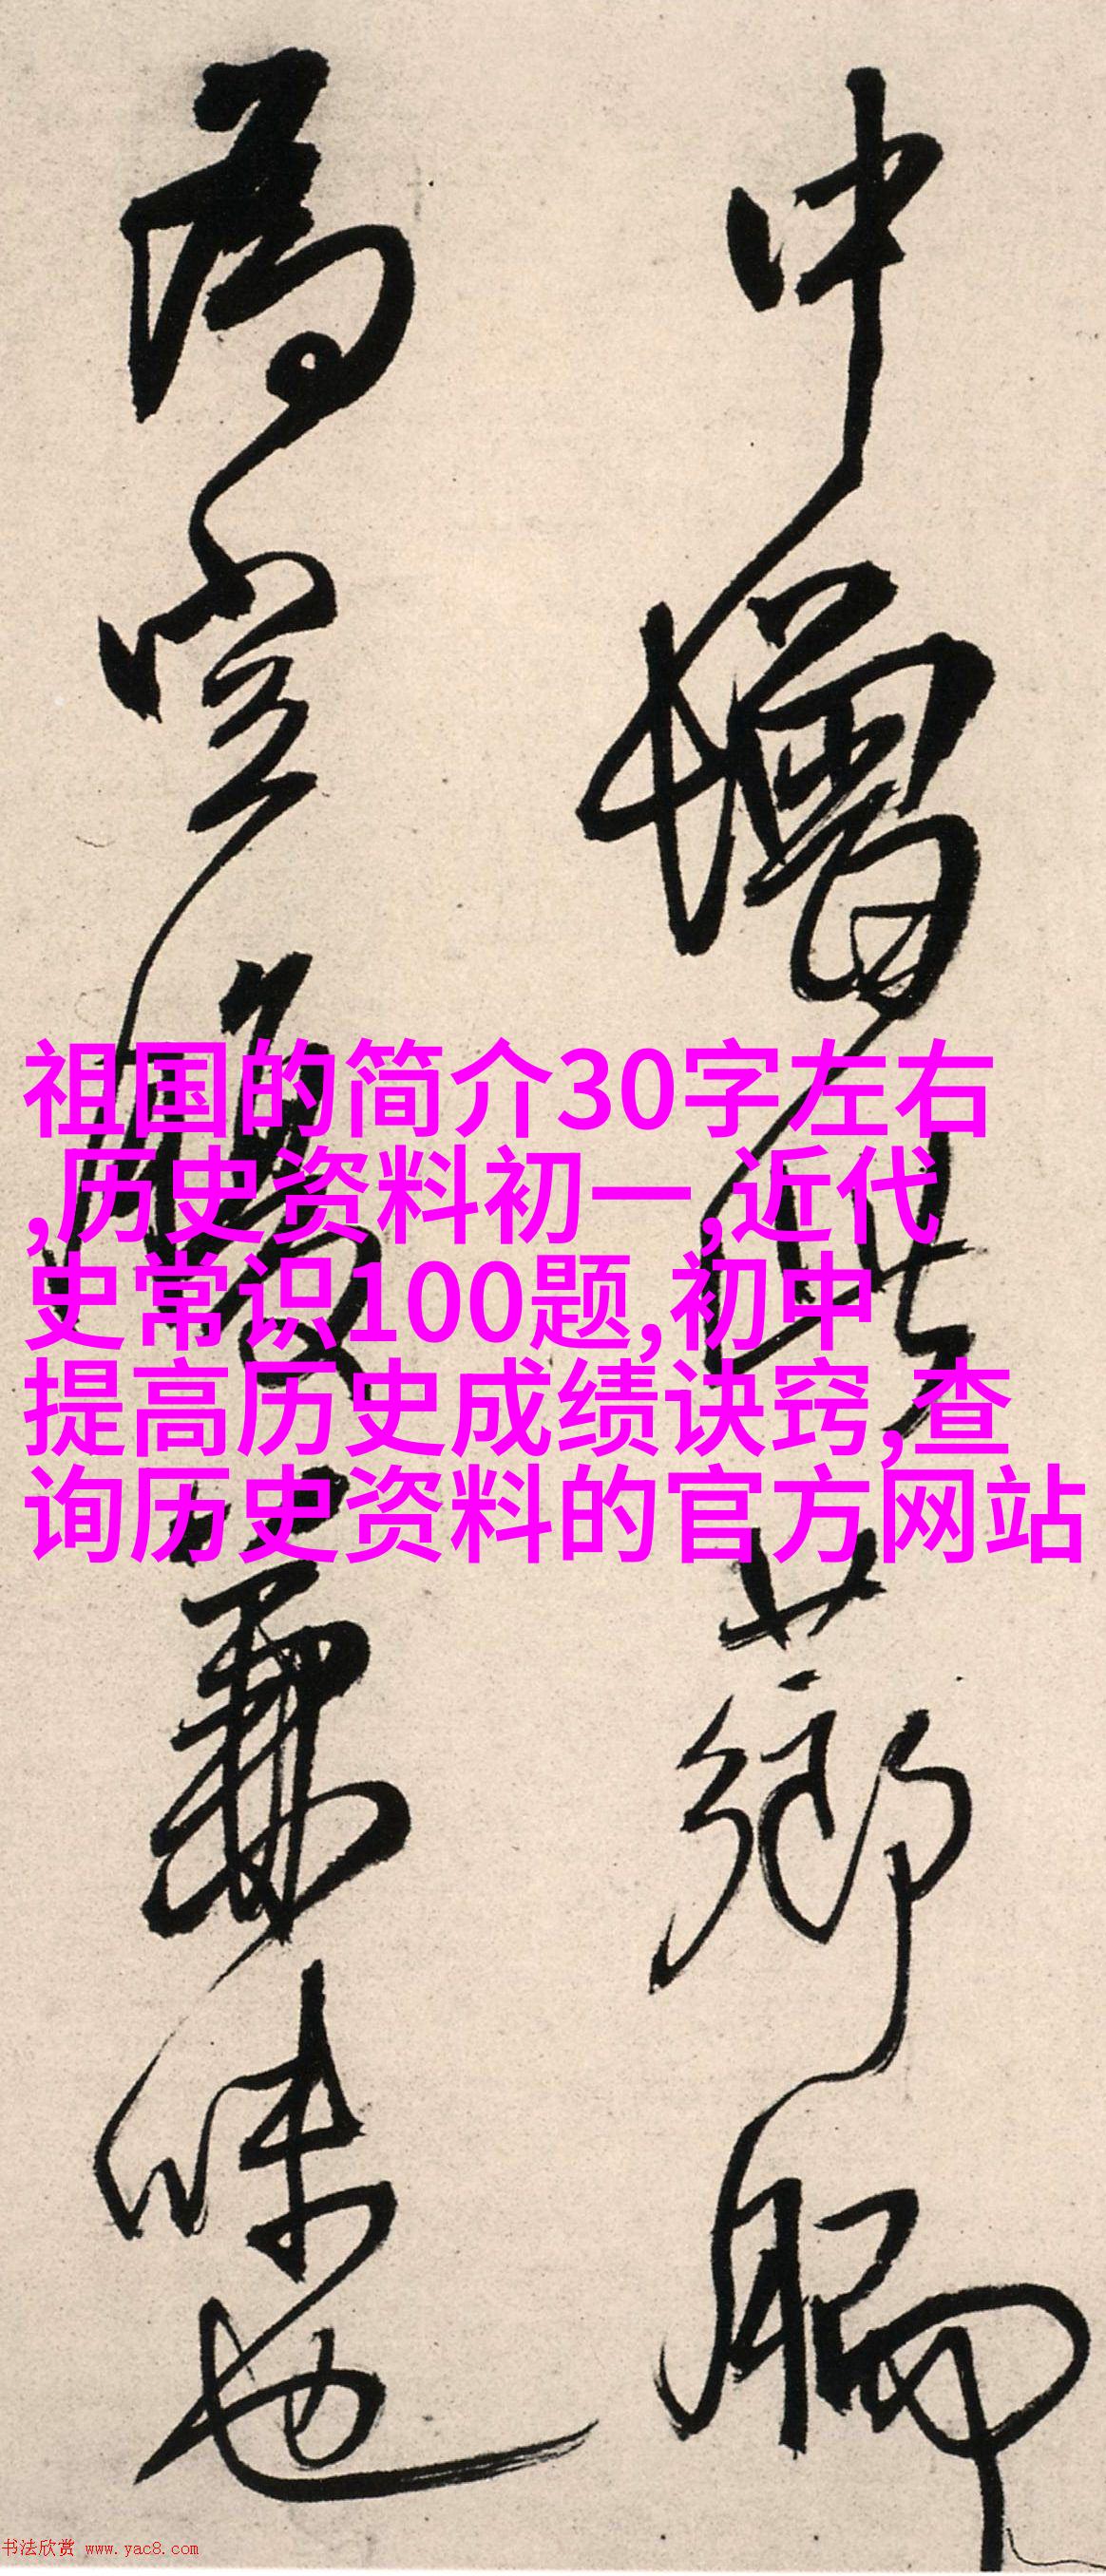 中增此芗䐈
为登顿兼味也
祖国的简介30字左右
,历史资料初一,近代
史常识100题,初中
提高历史成绩诀窍,查
询历史资料的官方网站
书法欣赏 www.yac8.com